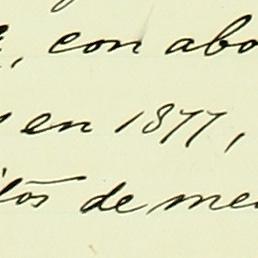 , con abo
en 1877,
itos de me